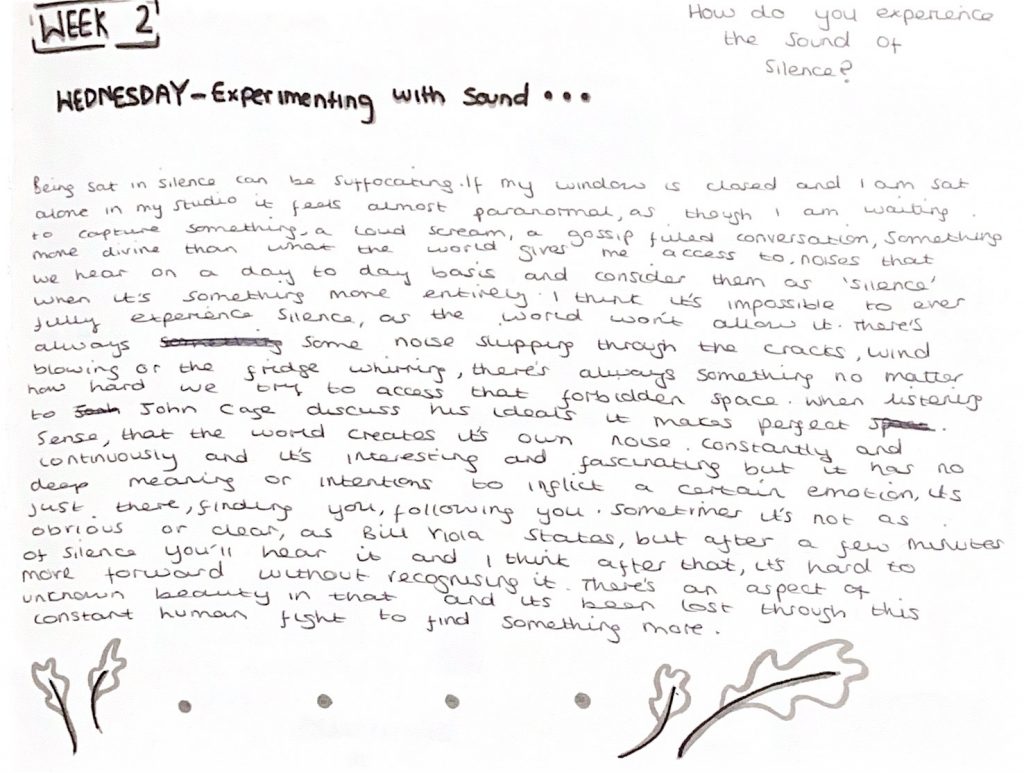 WEEK 2
How do you experience
the sound of
silence?
WEDNESDAY - Experimenting with Sound...
Being sat in silence can be suffocating. If my window is closed and I am sat
alone in my studio it feels almost paranormal, as though I am waiting
to capture something, a loud scream, a gossip filled conversation, something
more divine than what the world gives me access to. noises that
we hear on a day to day basis and consider them as 'silence'
when it's something more entirely. I think it's impossible to ever
fully experience silence, as the world won't allow it. There's
always something some noise slipping through the cracks, wind
blowing or the fridge whirring, there's always something no matter
how hard we try to access that forbidden space. when listening
to John Cage discuss his ideals it makes perfect space.
Sense, that the world creates it's own noise. constantly and
continuously and it's interesting and fascinating but it has no
deep meaning or intentions to inflict a certain emotion, its
just there, finding you, following you. sometimes it's not as
obvious or clear, as Bill Viola states, but after a few minutes
of silence you'll hear it and I think after that, its hard to
move forward without recognising it. There's an aspect of
unknown beauty in that and its been lost through this
constant human fight to find something more.